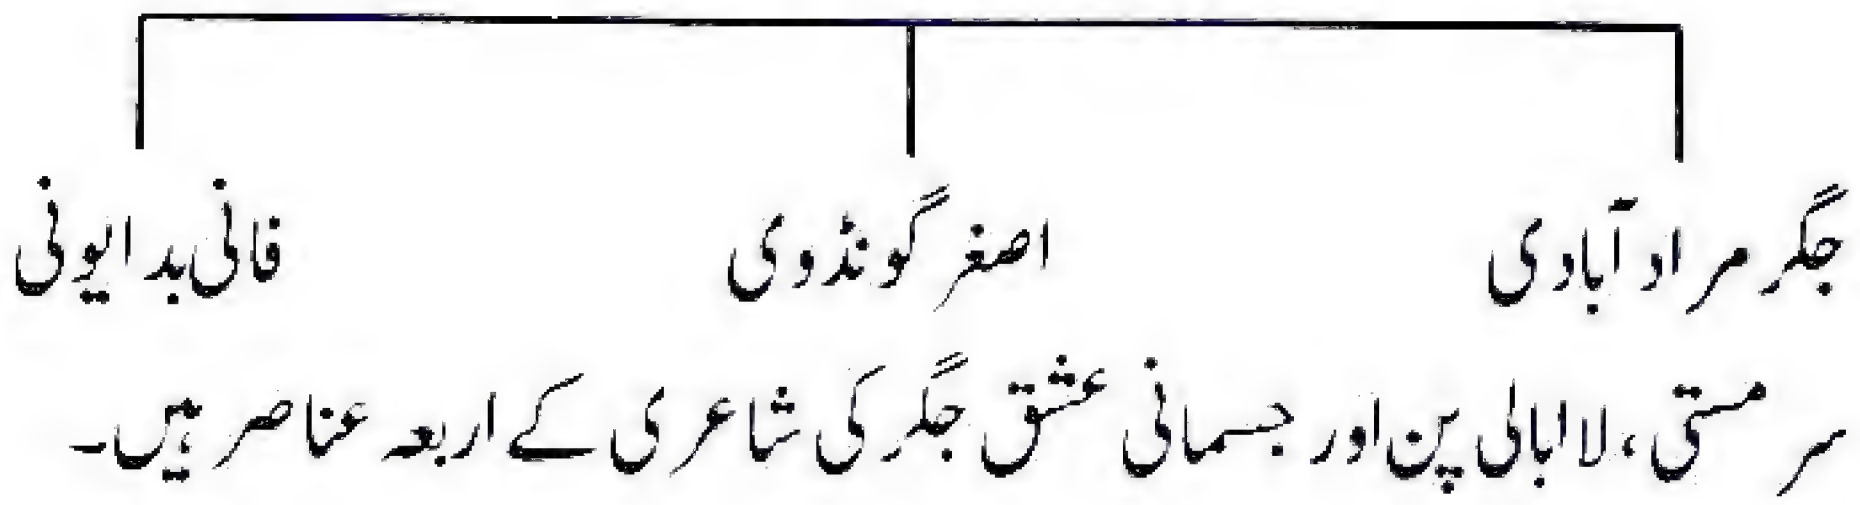 جگر مراد آبادی اصغر گونڈوی فانی بدایونی
سر مستی، لا ابالی پن اور جسمانی عشق جگر کی شاعری کے اربعہ عناصر ہیں۔